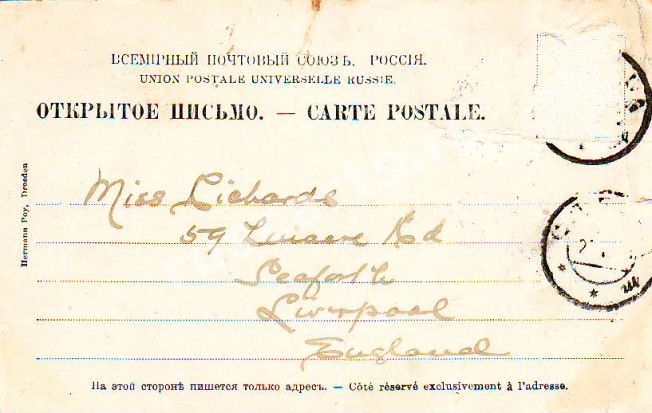 ВСЕМІРНЫЙ ПОЧТОВЫЙ СОЮЗЪ. РОССІЯ.
UNION POSTALE UNIVERSELLE RUSSIE.
ОТКРЫТОЕ ПИСЬМО. — CARTE POSTALE.
Hermann Poy, Dresden
Miss Richards
59 Rd
Seaforth
Liverpool
England
На этой сторонѣ пишется только адресъ. — Côté réservé exclusivement à l'adresse.